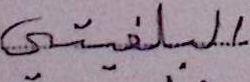 البلفيتي